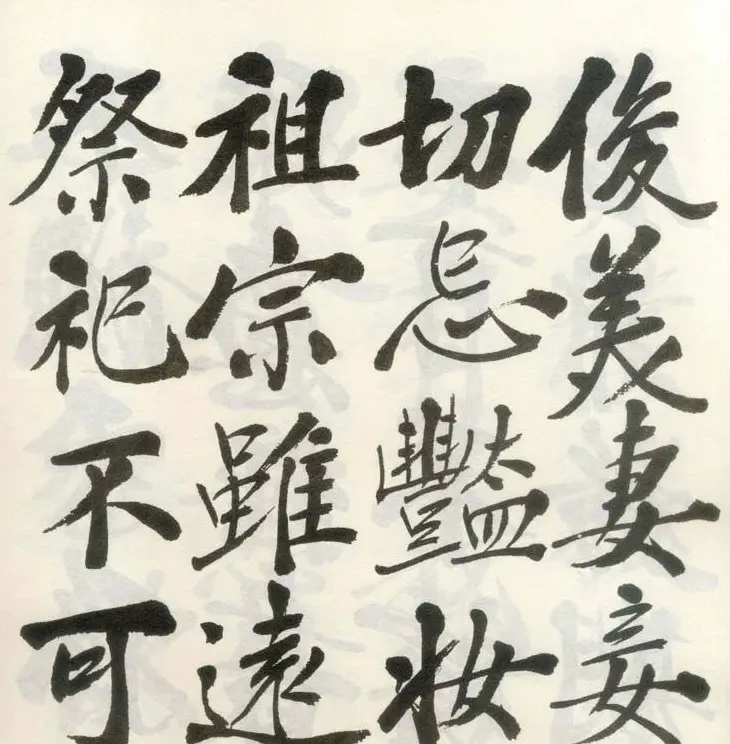 俊美妻妾
切忌豔妝
祖宗雖遠
祭祀不可